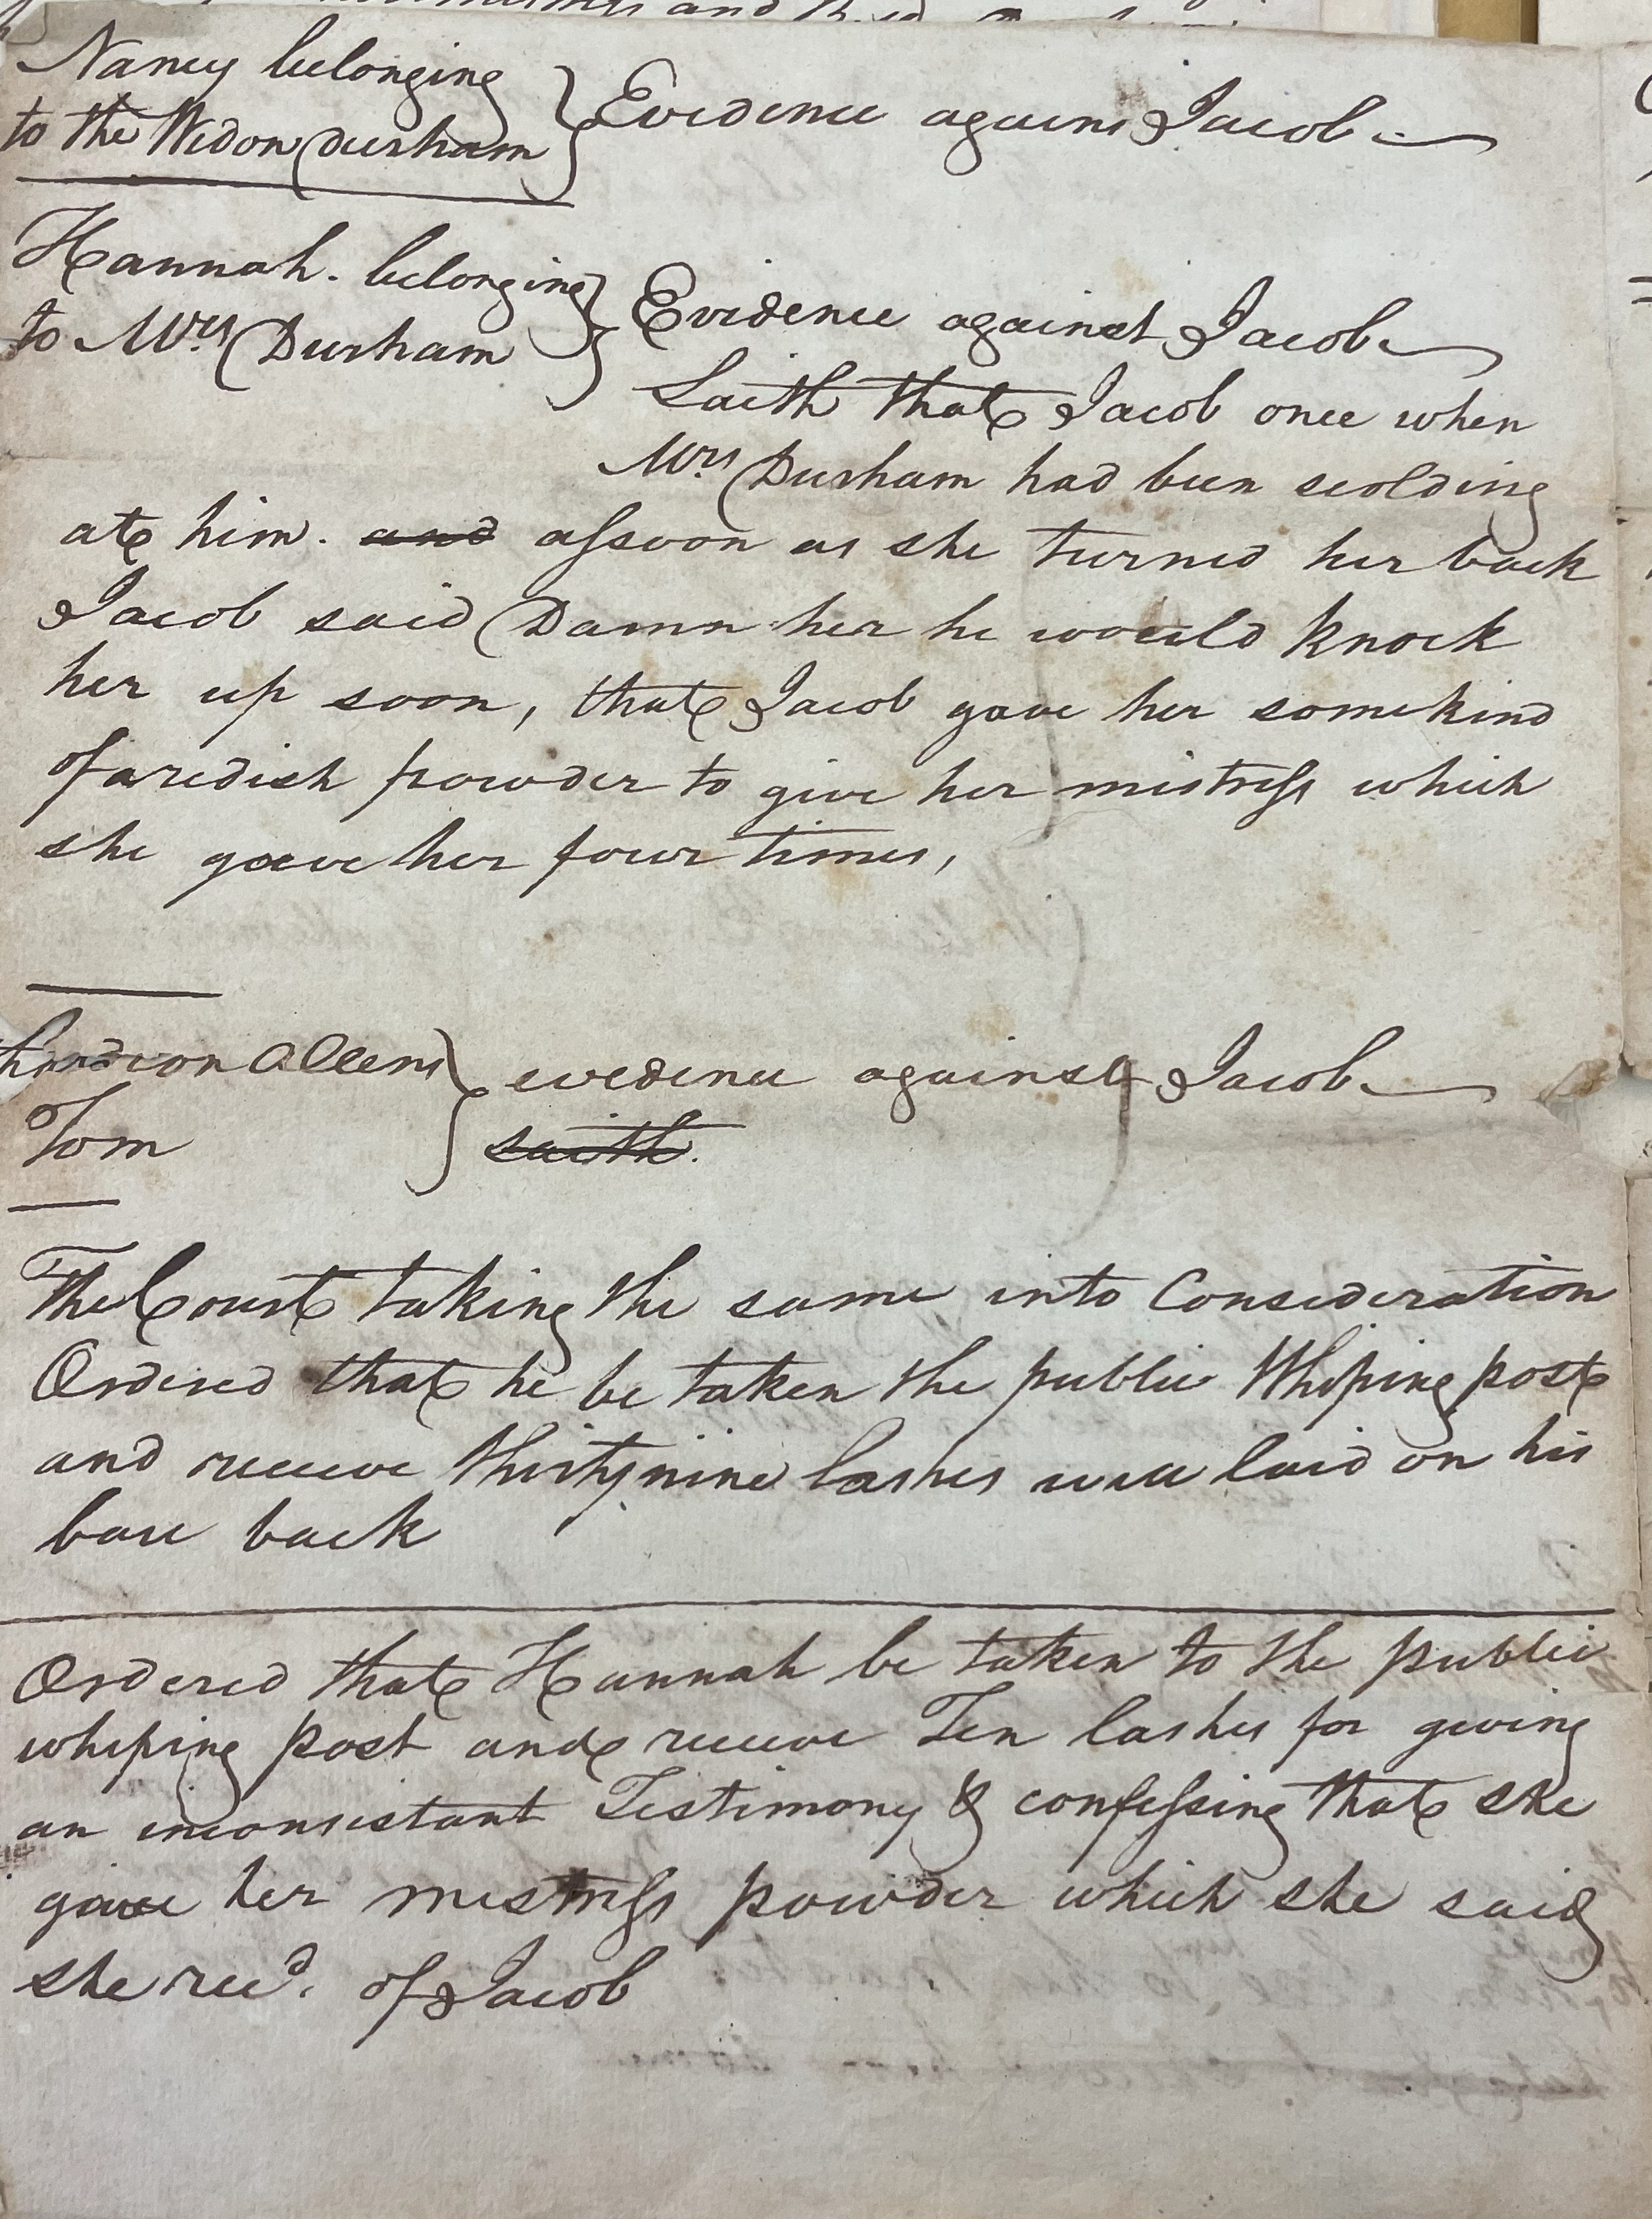 Nancy belonging
to the Widow Durham } Evidence against Jacob
Hannah. belonging
to Mrs Durham } Evidence against Jacob
Saith that Jacob once when
Mrs Durham had been scolding
at him. and assoon as she turned her back
Jacob said Damn her he would knock
her up soon, that Jacob gave her some kind
of a redish powder to give her mistress which
she gave her four times,
Allens
Tom } evedence against Jacob
saith.
The Court taking the same into Consideration
Ordered that he be taken the public Whiping post
and receive thirty nine lashes well laid on his
bare back
Ordered that Hannah be taken to the public
whiping post and receive Ten lashes for giving
an inconsistant Testimony & confessing that she
gave her mistress powder which she said
she recd. of Jacob